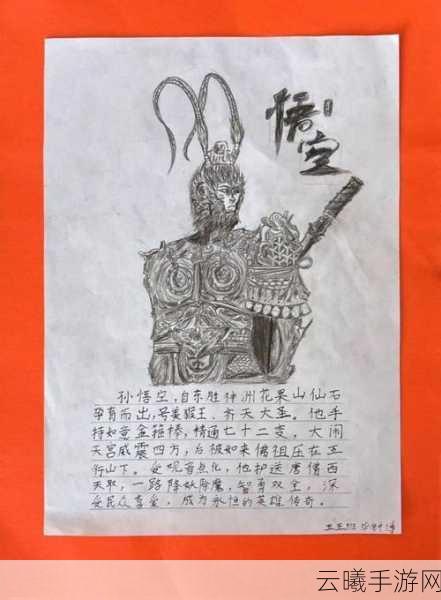 悟空
孙悟空,自东胜神洲花果山仙石
孕育而出,号美猴王、齐天大圣。他手
持如意金箍棒,精通七十二变,大闹
天宫威震四方,后被如来佛祖压在五
行山下。受观音点化,他护送唐僧西
天取,一路降妖除魔,智勇双全,深
受民众喜爱,成为永恒的英雄传奇。
云曦手游网